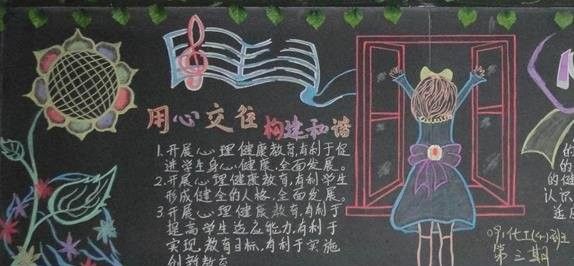 用心交往
构建和谐
1.开展心理健康教育,有利于促
进学生身心健康,全面发展。
2.开展心理健康教育,有利学生
形成健全的人格,全面发展。
3.开展心理健康教育,有利于
提高学生适应能力,有利于
实现教育目标,有利于实施
创新教育
的
的
的健
认识
适应
班
第三期